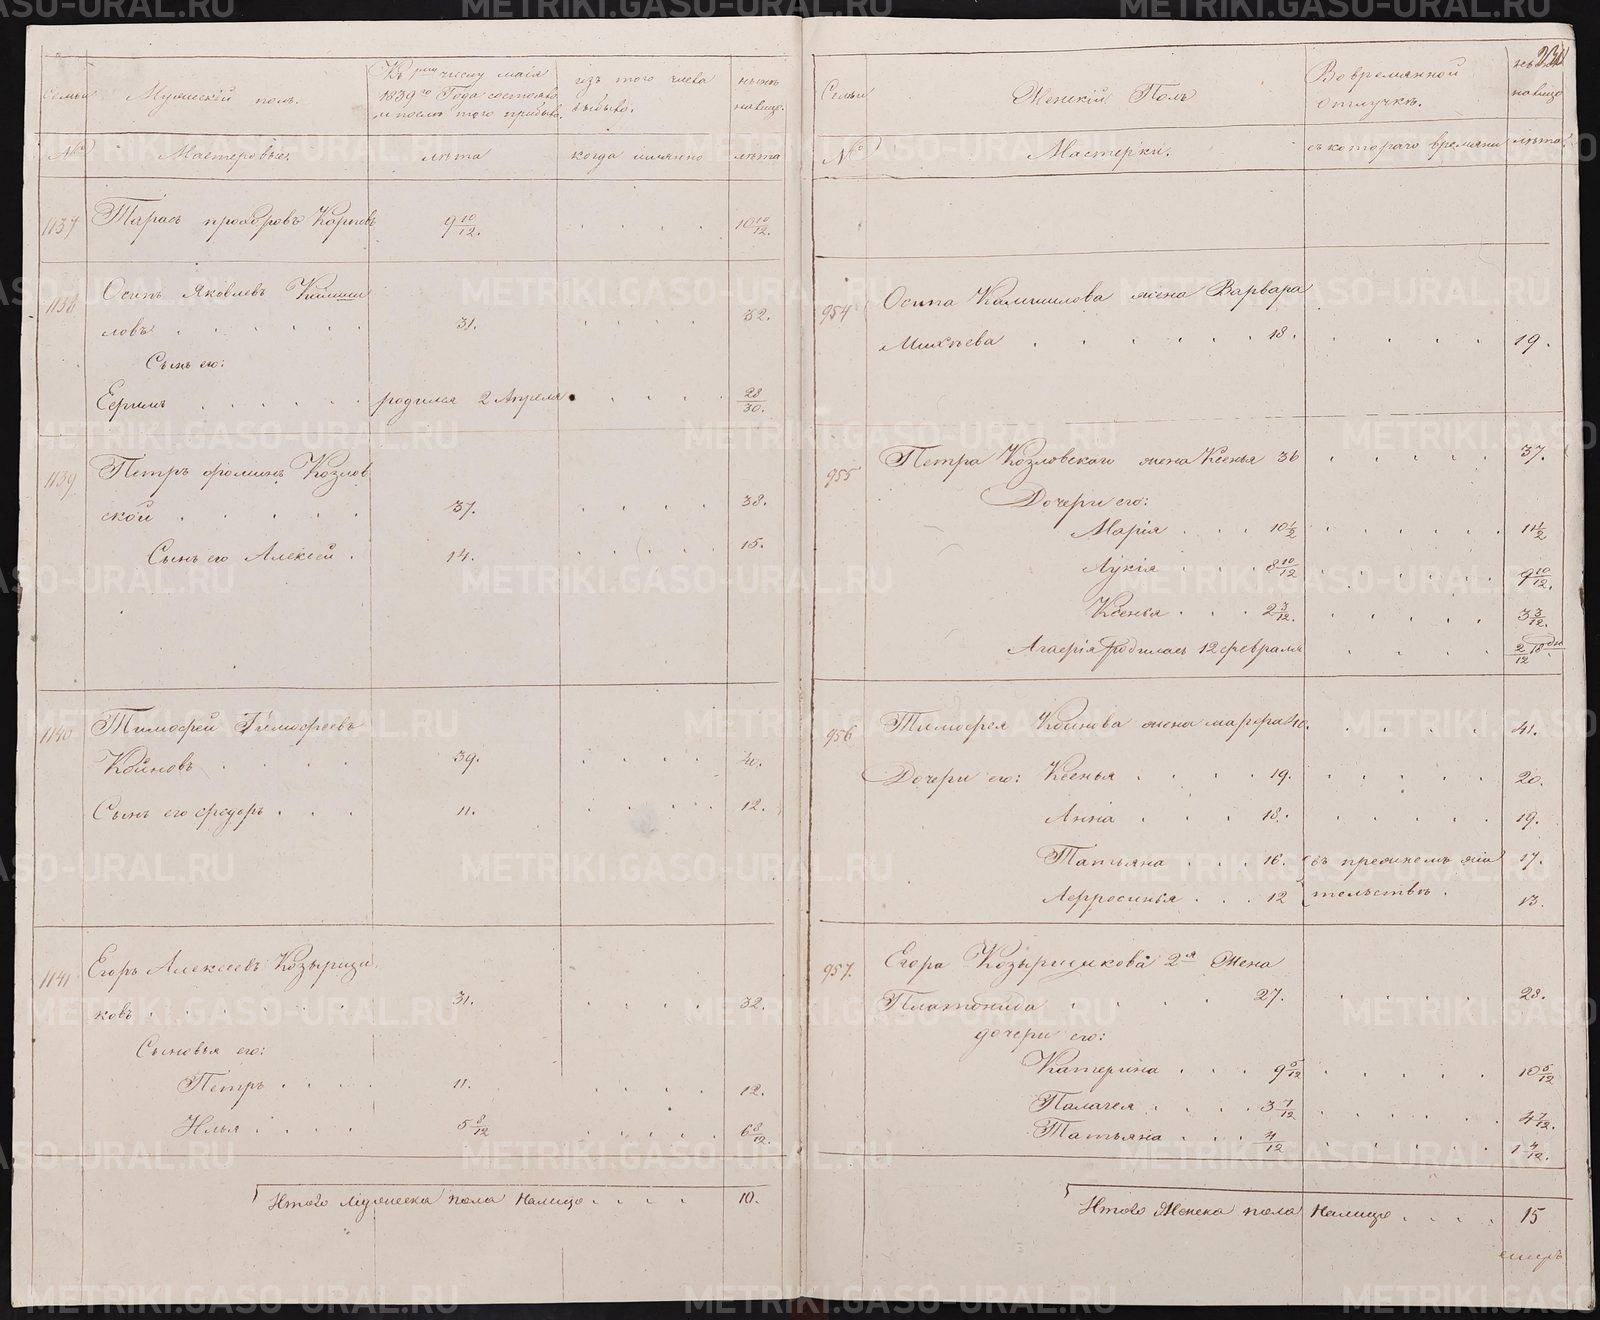 Семьи
Мужескій полъ.
Къ числу маія
1839го Года состояло
и послѣ того прибыло.
изъ того числа
выбыло.
нынѣ
налицо.
№
Мастеровые.
лѣта
когда имянно
лѣта
1137 Тарасъ прохоровъ Карповъ 9 10/12. 10 10/12.
1138 Осипъ Яковлевъ Камши
ловъ 31. 32.
Сынъ его:
Ефимъ родился 2 Апреля 28/30.
1139 Петръ фоминъ Козлов
ской 37. 38.
Сынъ его Алексей. 14. 15.
1140 Тимофей Тимофеевъ
Койновъ 39. 40.
Сынъ его федоръ 11. 12.
1141 Егоръ Алексеевъ Козырщи
ковъ 31. 32.
Сыновья его:
Петръ 11. 12.
Илья 5 8/12 6 8/12.
Итого Мужеска пола Налицо 10.
Семьи
Женскій Полъ
Во времянной
отлучкѣ.
налицо
№
Мастерки.
съ котораго времяни
лѣта.
954 Осипа Камшилова жена Варвара
Михѣева 18. 19.
955 Петра Козловскаго жена Ксенья 36 37.
Дочери его:
Марія 10 1/2 11 1/2
Лукія 8 10/12 9 10/12.
Ксенья 2 3/12. 3 3/12.
Агафія Родилась 12 февраля 2/12 18 дн
956 Тимофея Койнова жена марфа 40. 41.
Дочери его: Ксенья 19. 20.
Анна 18. 19.
Татьяна 16. въ прежнемъ жи 17.
Аефросинья 12 тельствѣ. 13.
957. Егора Козырщикова 2я Жена
Платонида 27. 28.
дочери его:
Катерина 9 5/12 10 5/12
Палагея 3 7/12 4 7/12.
Татьяна 4/12 1 4/12.
Итого Женска пола Налицо 15
METRIKI.GASO-URAL.RU